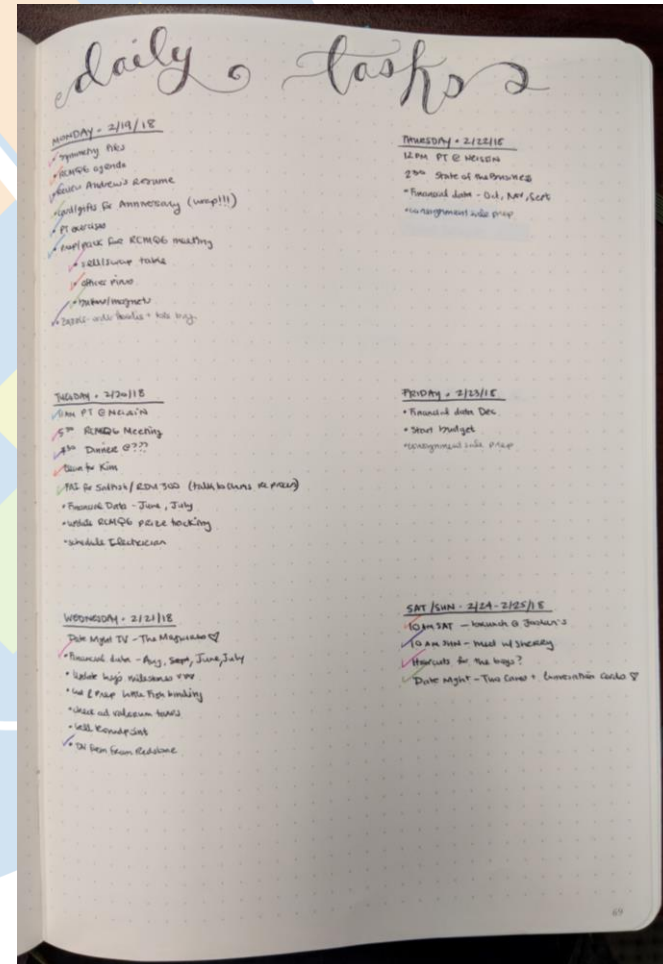 daily tasks
MONDAY - 2/19/18
• Symmetry
• RCMQG agenda
• Review Andrew's Resume
• card/gifts for Anniversary (wrap!!!)
• PT exercises
• prep/pack for RCMQG meeting
• sell/swap table
• officer pins
• buttons/magnets
TUESDAY - 2/20/18
PT @
5:30 RCMQG Meeting
Dinner @???
Kim
PAI for (talk to
• Financial Data - June, July
• update RCMQG prize tracking
• schedule Electrician
WEDNESDAY - 2/21/18
Date Night TV - The Magicians ♡
• Financial data - Aug, Sept, June, July
• Update boys milestones
• Cut & Prep Little Fish binding
• check ad valorem taxes
• Call Roundpoint
• from
THURSDAY - 2/22/18
12 PM PT @
State of the Business
• Financial data - Oct, Nov, Sept
• consignment sale prep
FRIDAY - 2/23/18
• Financial data Dec.
• Start budget
• consignment sale prep
SAT/SUN - 2/24 - 2/25/18
10 AM SAT - brunch @
10 AM SUN - meet w/ Sherry
Haircuts for the boys?
Date Night - Two + Conversation Cards ♡
69